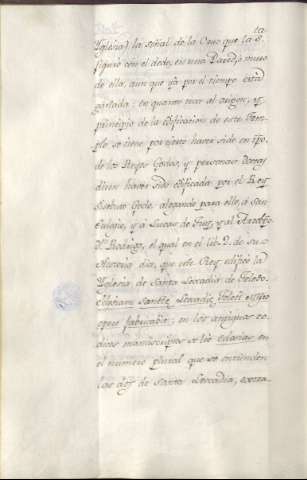 Yglesia) la señal de la Cruz que la S.ta
figuró con el dedo, en una Pared, ó muro
de ella, aunque ya por el tiempo está
gastada: en quanto mar al origen, y
principio de la edificacion de este Tem-
plo se tiene por cierto haver sido en tpo.
de los Reyes Godos, y personas Doctas
dicen haver sido edificada por el Rey
Sisebuto Godo, alegando para ello, á San
Eulogio, y á Lucas de Tuy, y al Arzobpo.
D.n Rodrigo, el qual en el lib. 2. de su
Historia dia, que este Rey edificó la
Yglesia de Santa Leocadia de Toledo.
Ecclesiam Sanctæ Leocadiæ Toleti
opere fabricavit; en los antiguos co-
dices manuscriptos se lée Eclesias, en
el numero plural que se entienden
las dos de Santa Leocadia,